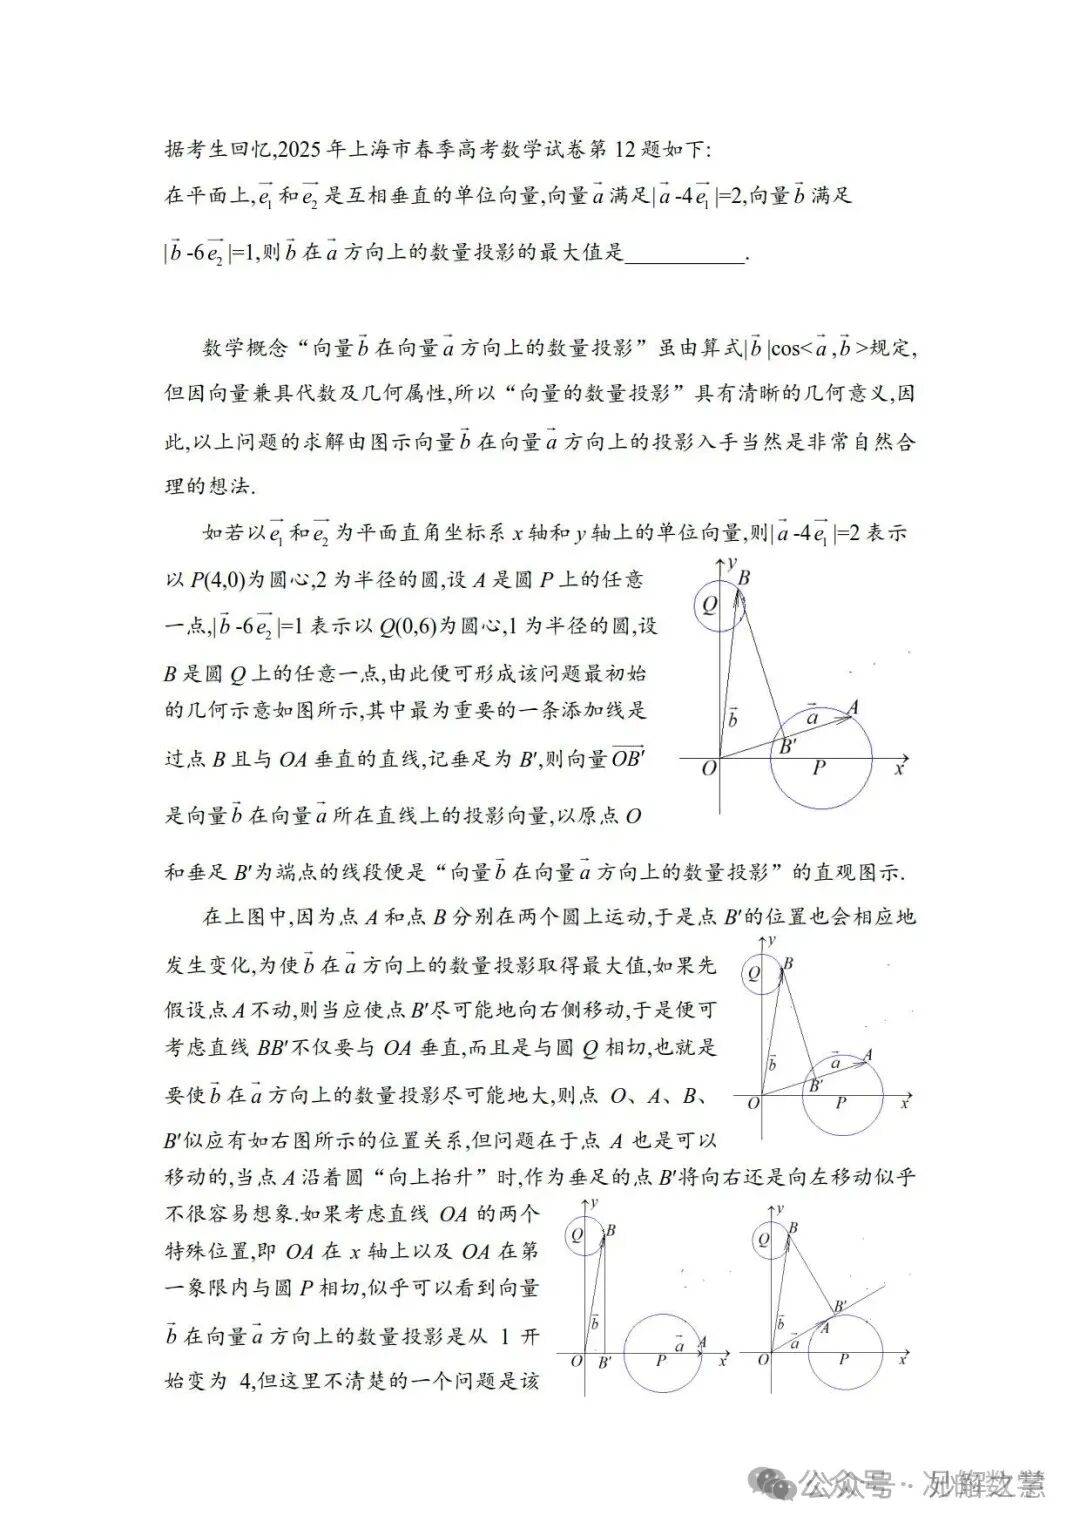 据考生回忆,2025年上海市春季高考数学试卷第12题如下:
在平面上,$\vec{e_1}$和$\vec{e_2}$是互相垂直的单位向量,向量$\vec{a}$满足|$\vec{a}$-4$\vec{e_1}$|=2,向量$\vec{b}$满足
|$\vec{b}$-6$\vec{e_2}$|=1,则$\vec{b}$在$\vec{a}$方向上的数量投影的最大值是____________.
数学概念“向量$\vec{b}$在向量$\vec{a}$方向上的数量投影”虽由算式|$\vec{b}$|cos<$\vec{a}$,$\vec{b}$>规定,
但因向量兼具代数及几何属性,所以“向量的数量投影”具有清晰的几何意义,因
此,以上问题的求解由图示向量$\vec{b}$在向量$\vec{a}$方向上的投影入手当然是非常自然合
理的想法.
如若以$\vec{e_1}$和$\vec{e_2}$为平面直角坐标系x轴和y轴上的单位向量,则|$\vec{a}$-4$\vec{e_1}$|=2表示
以P(4,0)为圆心,2为半径的圆,设A是圆P上的任意
一点,|$\vec{b}$-6$\vec{e_2}$|=1表示以Q(0,6)为圆心,1为半径的圆,设
B是圆Q上的任意一点,由此便可形成该问题最初始
的几何示意如图所示,其中最为重要的一条添加线是
过点B且与OA垂直的直线,记垂足为B′,则向量$\overrightarrow{OB'}$
是向量$\vec{b}$在向量$\vec{a}$所在直线上的投影向量,以原点O
y
B
Q
$\vec{b}$
$\vec{a}$
A
B′
O
P
x
和垂足B′为端点的线段便是“向量$\vec{b}$在向量$\vec{a}$方向上的数量投影”的直观图示.
在上图中,因为点A和点B分别在两个圆上运动,于是点B′的位置也会相应地
发生变化,为使$\vec{b}$在$\vec{a}$方向上的数量投影取得最大值,如果先
假设点A不动,则当应使点B′尽可能地向右侧移动,于是便可
考虑直线BB′不仅要与OA垂直,而且是与圆Q相切,也就是
要使$\vec{b}$在$\vec{a}$方向上的数量投影尽可能地大,则点O、A、B、
B′似应有如右图所示的位置关系,但问题在于点A也是可以
y
Q
B
$\vec{b}$
$\vec{a}$
A
B′
O
P
x
移动的,当点A沿着圆“向上抬升”时,作为垂足的点B′将向右还是向左移动似乎
不很容易想象.如果考虑直线OA的两个
特殊位置,即OA在x轴上以及OA在第
一象限内与圆P相切,似乎可以看到向量
$\vec{b}$在向量$\vec{a}$方向上的数量投影是从1开
始变为4,但这里不清楚的一个问题是该
y
Q
B
$\vec{b}$
$\vec{a}$
A
O
B′
P
x
y
Q
B
$\vec{b}$
B′
A
$\vec{a}$
O
P
x
公众号·妙解数学
妙解之慧